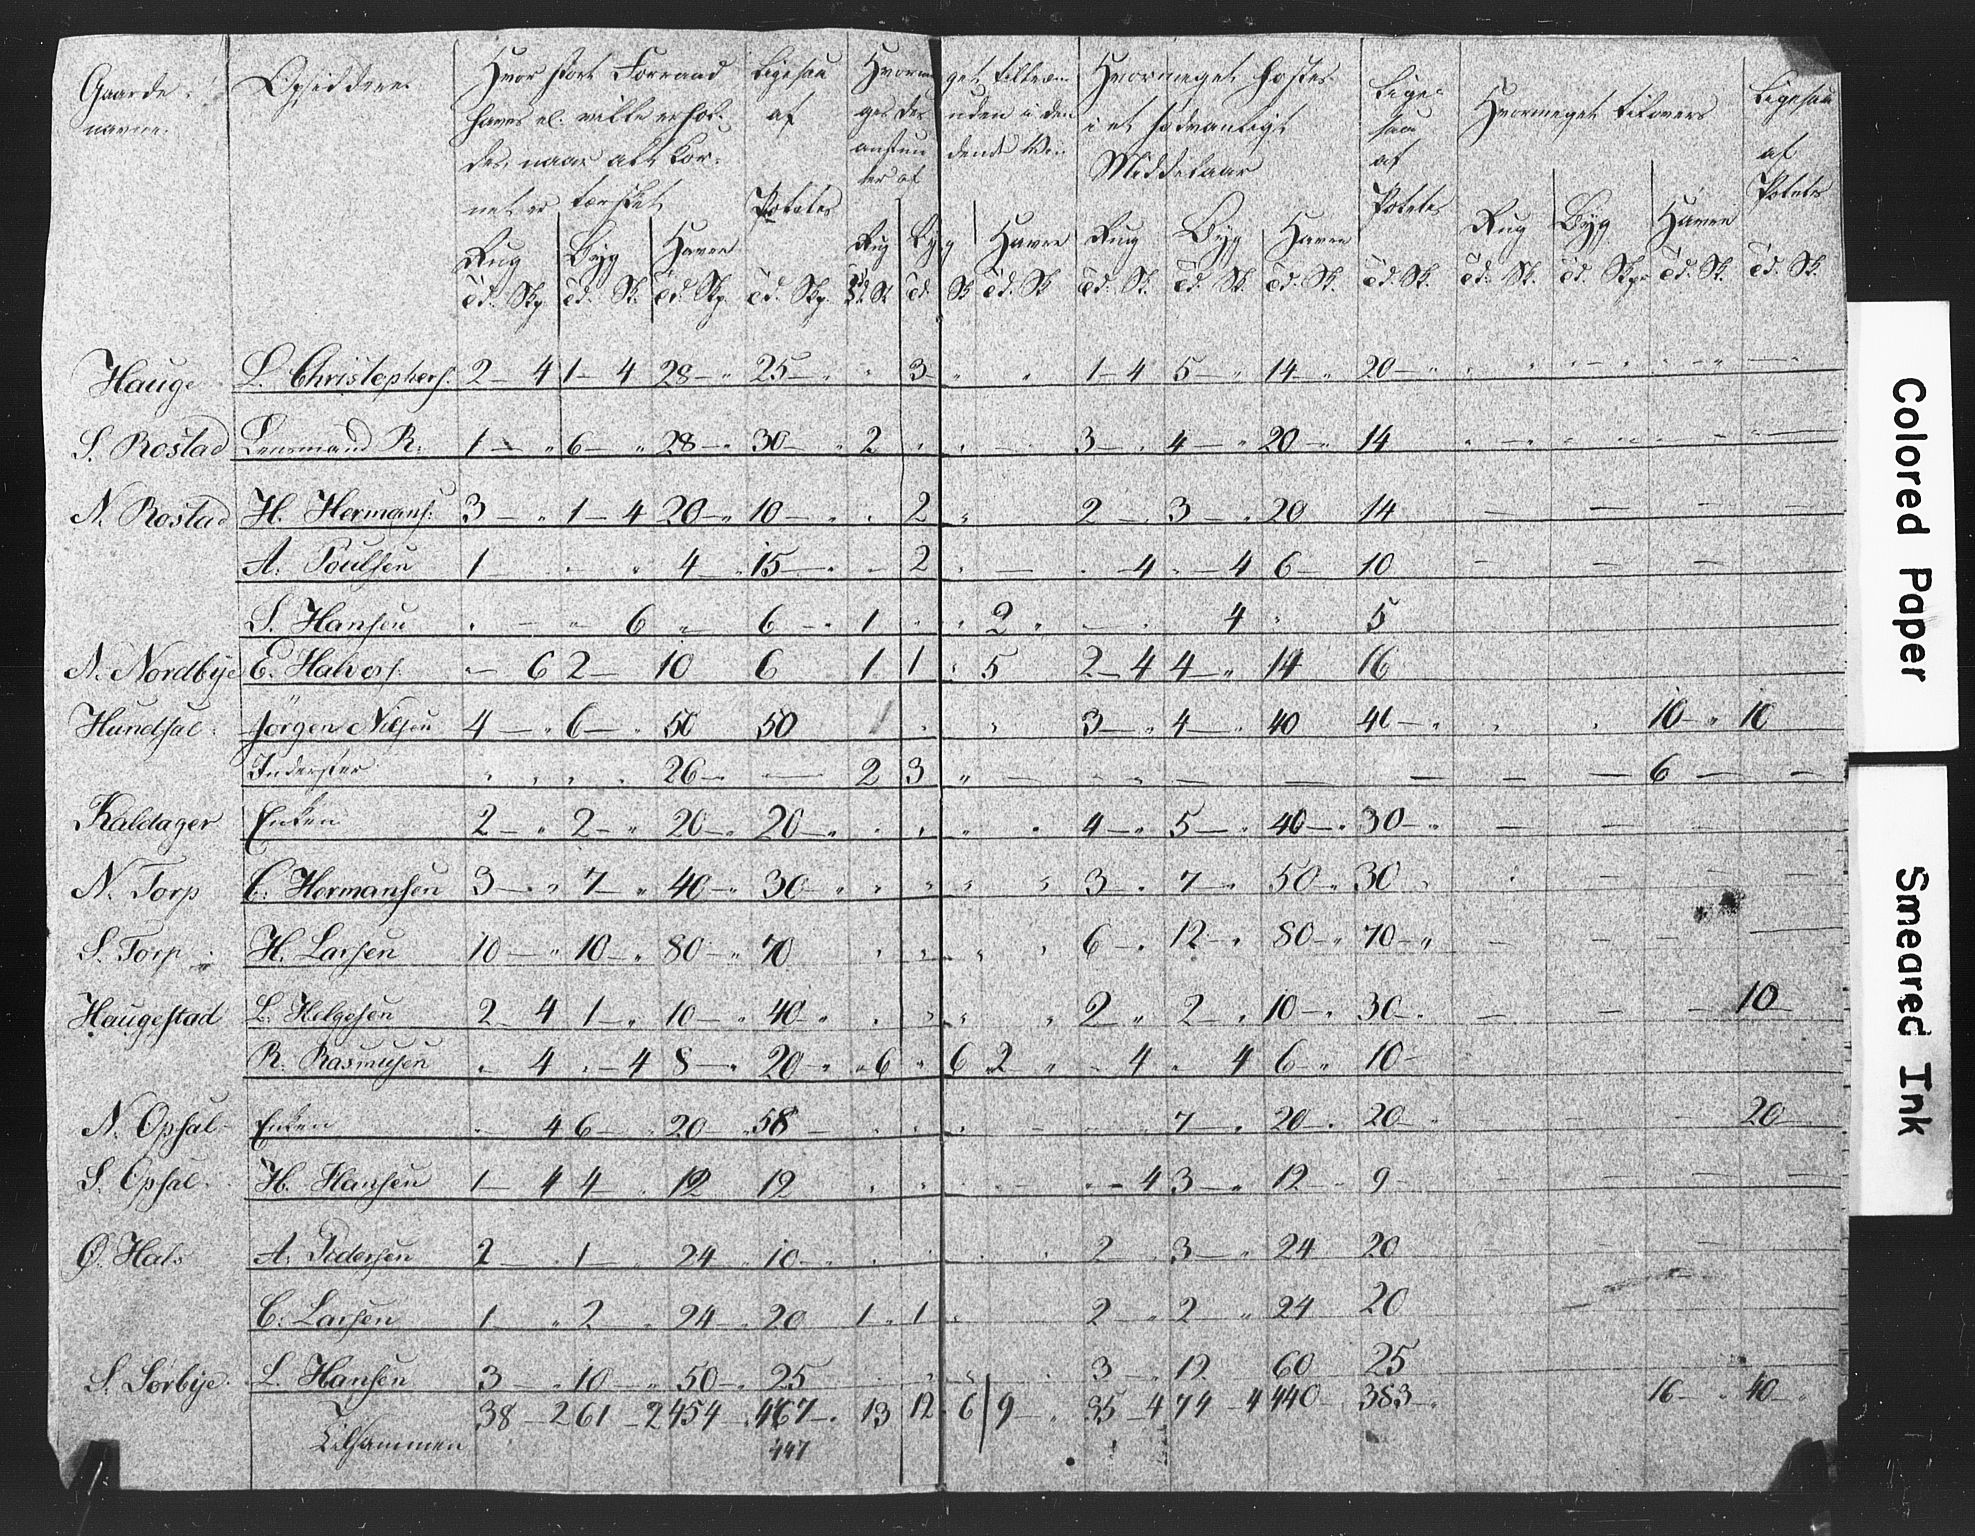 Gaarde navne. | Opsiddere. | Hvor stort Forraad haves el. ville erhol- des, naar alt Kor- net er tærsket | Ligesaa af Poteter | Hvormeget tiltræn- ges | Hvormeget høstes i et sædvanligt Middelaar | Lige- saa af Poteter | Hvormeget tilovers | Ligesaa af Poteter
Rug | Byg | Havre | Rug | Byg | Havre | Rug | Byg | Havre | Rug | Byg | Havre
Hauge | L. Christophers. | 2 – 4 | 1 – 4 | 28 – " | 25 – " | " | 3 | " | " | 1 – 4 | 5 – " | 14 – " | 20 – "
S. Rostad | Lensmand R. | 1 – " | 6 – " | 28 – " | 30 – " | 2 | " | " | – | 3 – " | 4 – " | 20 – " | 14
N. Rostad | H. Hermans. | 3 – " | 1 – 4 | 20 – " | 10 – " | " | 2 | " | 2 – " | 3 – " | 20 | 14
A. Poulsen | 1 – | " | 4 – " | 15 – " | – | 2 | " | – | " – 4 | " – 4 | 6 – | 10
S. Hansen | " – | " 6 | " | 6 – " | 1 | " | " | 2 " | – " | 4 | " | 5
N. Nordbye | E. Halvors. | – 6 | 2 – | 10 | 6 | 1 | 1 | " | 5 | 2 – 4 | 4 – " | 14 | 16
Hundsal | Jörgen Nilsen | 4 – " | 6 – " | 50 | 50 | " | " | 3 – " | 4 – " | 40 | 40 – " | " | " | 10 – " | 10
Inderster | " | " | 26 – | – | 2 | 3 | " | – | – | – | – | – | – | – | 6 – | –
Kaldager | Enken | 2 – " | 2 – " | 20 – " | 20 – " | " | " | " | " | 4 – " | 5 – " | 40 – " | 30 – " | – | – | –
N. Torp | C. Hermansen | 3 – " | 7 – " | 40 – " | 30 – " | " | " | " | " | 3 – " | 7 – " | 50 – " | 30 " | " | – | – | –
S. Torp | H. Larsen | 10 – " | 10 – " | 80 – " | 70 | " | " | " | " | 6 – " | 12 – " | 80 – " | 70 – " | – | – | – | –
Haugestad | L. Helgesen | 2 – 4 | 1 – " | 10 – " | 40 – " | " | " | " | " | 2 " | 2 – " | 10 – " | 30 – " | – | – | – | 10
R. Rasmusen | " – 4 | " – 4 | 8 – " | 20 – " | " 6 | " 6 | 2 " | – 4 | " 4 | 6 – " | 10 –
N. Opsal | Enken | " 4 | 6 – " | 20 – " | 58 – | " | " | " | – | 7 – " | 20 – " | 20 – " | – | – | – | 20 –
S. Opsal | H. Hansen | 1 – 4 | 4 – " | 12 | 12 | " | " | " | – | " – 4 | 3 – " | 12 – " | 9 – | – | – | – | –
Ø. Hals | A. Pedersen | 2 – " | 1 – " | 24 – " | 10 – " | " | " | " | " | 2 " | 3 – " | 24 | 20 | – | – | –
C. Larsen | 1 – " | 2 – " | 24 – " | 20 | 1 " | 1 | " | 2 – " | 2 " | 24 | 20
S. Sørbye | L. Hansen | 3 – " | 10 – " | 50 – " | 25 | " | " | " | " | 3 " | 12 | 60 | 25
Tilsammen | 38 – 2 | 61 – 2 | 454 – | 467 – " | 13 | 12 6 | 9 – " | 35 – 4 | 74 – 4 | 440 – | 383 – " | 16 – " | 40 – "
447
Colored Paper
Smeared Ink